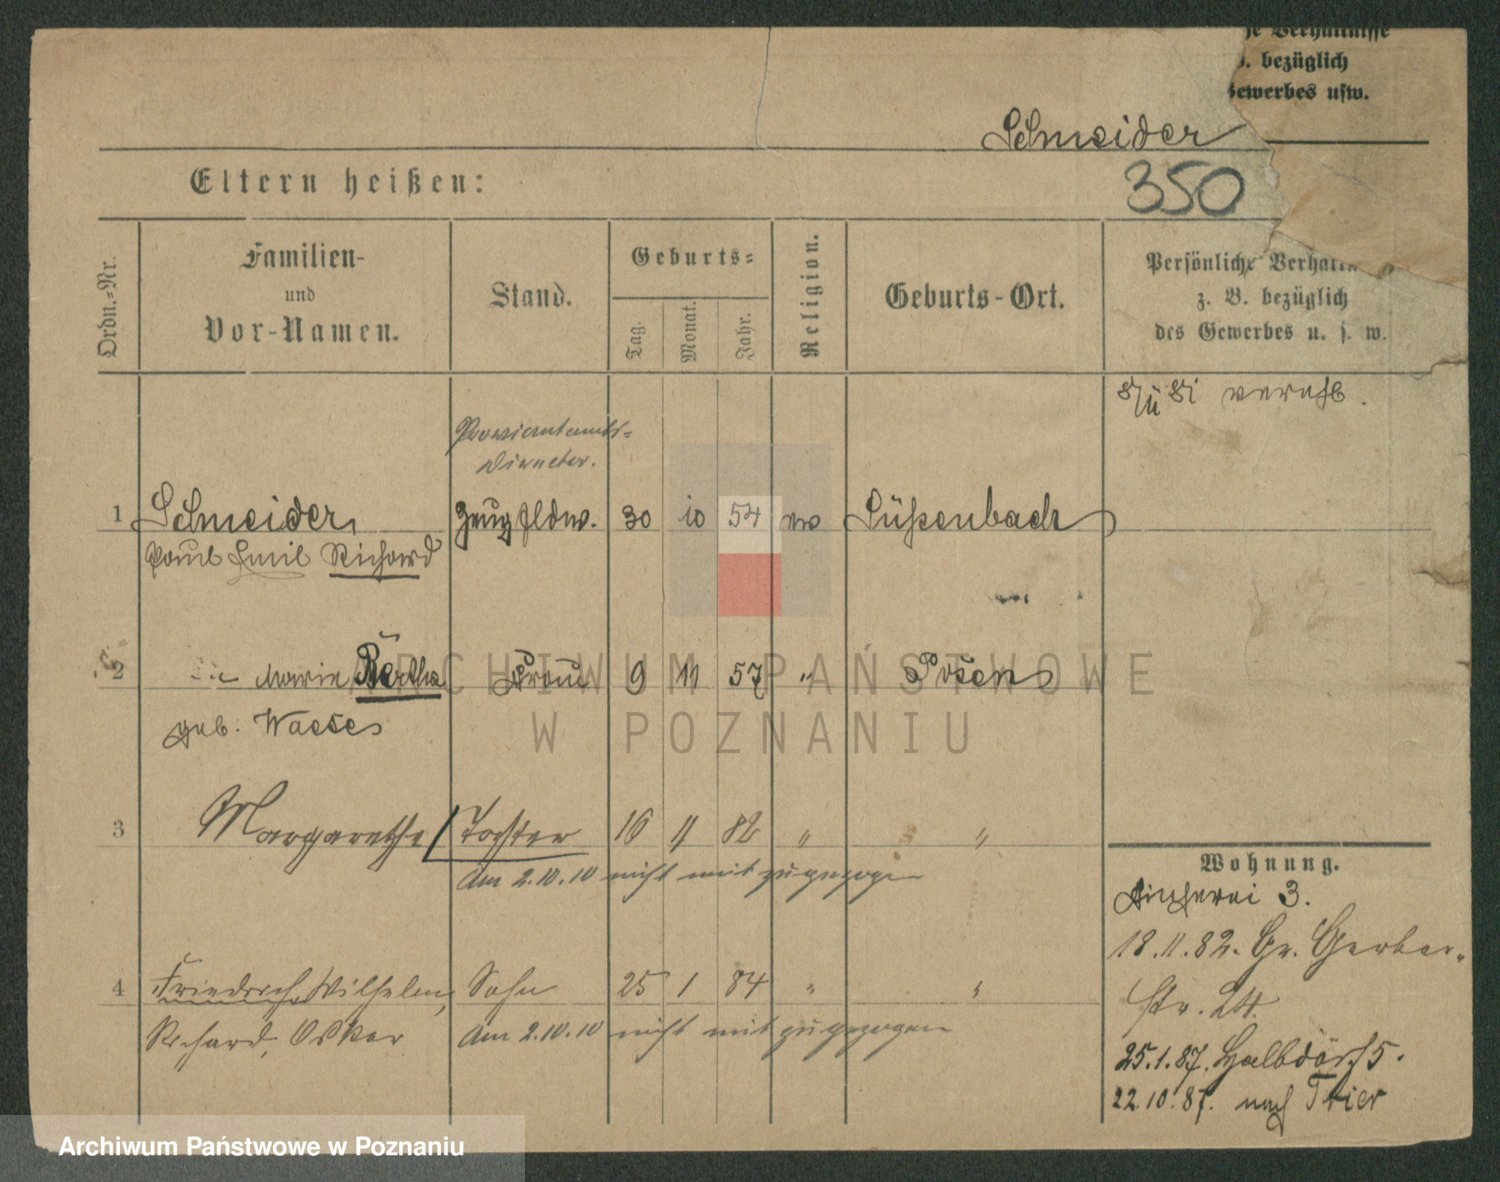 se Verhältnisse
B. bezüglich
Gewerbes usw.
Schneider
Eltern heißen:
350
Ordn.=Nr.
Familien-
und
Vor-Namen.
Stand.
Geburts=
Tag.
Monat.
Jahr.
Religion.
Geburts-Ort.
Persönliche Verhält
z. B. bezüglich
des Gewerbes u. s. w.
Proviantamts=
Director.
1 Schneider, Zeugfldw. 30 10 54 ev Süßenbach
Paul Emil Richard
2 Marie Bertha Frau 9 11 57 " Posen
geb. Waeses
3 Margarethe Tochter 16 11 82 " "
Am 2.10.10 nicht mit zugezogen
4 Friedrich Wilhelm, Sohn 25 1 84 " "
Richard, Oskar Am 2.10.10 nicht mit zugezogen
Wohnung.
3.
18.11.82. Gr. Gerber-
str. 24.
25.1.87. Halbdorf 5.
22.10.87. nach Trier
ARCHIWUM PAŃSTWOWE
W POZNANIU
Archiwum Państwowe w Poznaniu